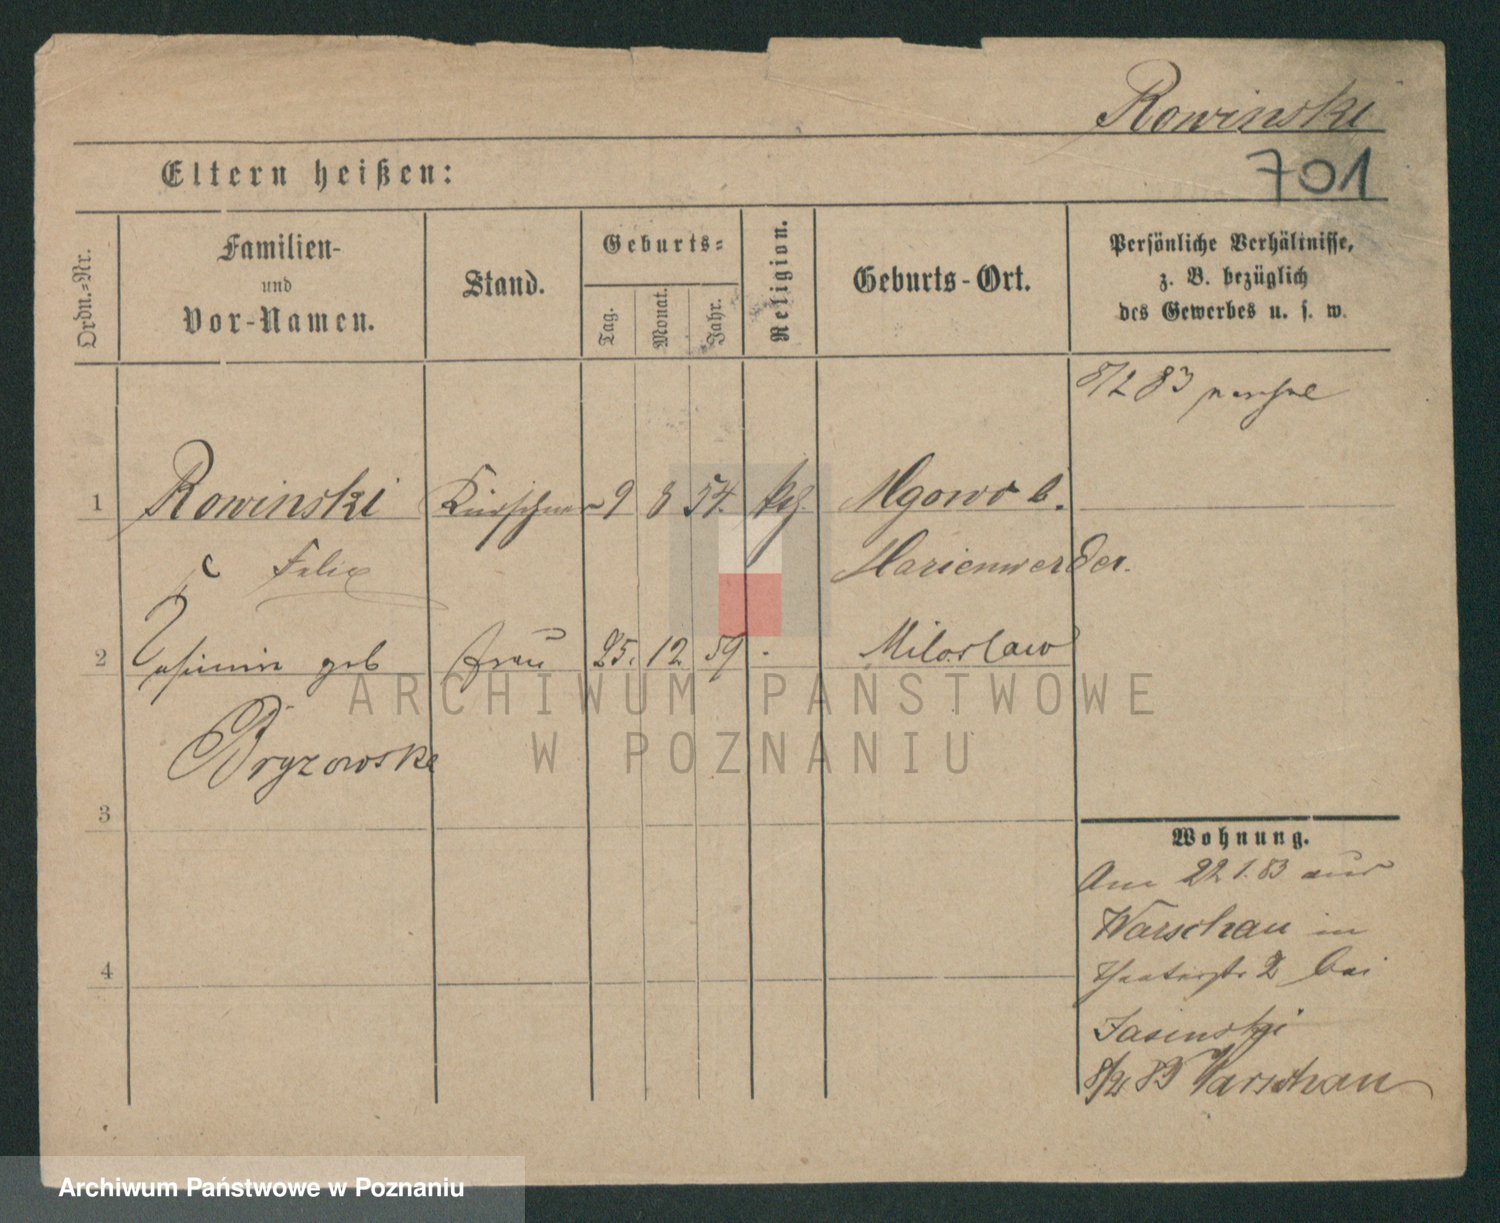 Rowinski
701
Eltern heißen:
Ordn.-Nr.
Familien-
und
Vor-Namen.
Stand.
Geburts-
Tag.
Monat.
Jahr.
Religion.
Geburts-Ort.
Persönliche Verhältnisse,
z. B. bezüglich
des Gewerbes u. s. w.
8/2 83
1 Rowinski Kürschner 9 8 54. Mgowo b.
Felix Marienwerder.
2 geb Frau 25. 12 59 Miloslaw
Bryzowska
3
4
Wohnung.
Am 22 1. 83 aus
Warschau in
Theaterstr 2 bei
Jasinski
8/2 83 Warschau
ARCHIWUM PAŃSTWOWE
W POZNANIU
Archiwum Państwowe w Poznaniu